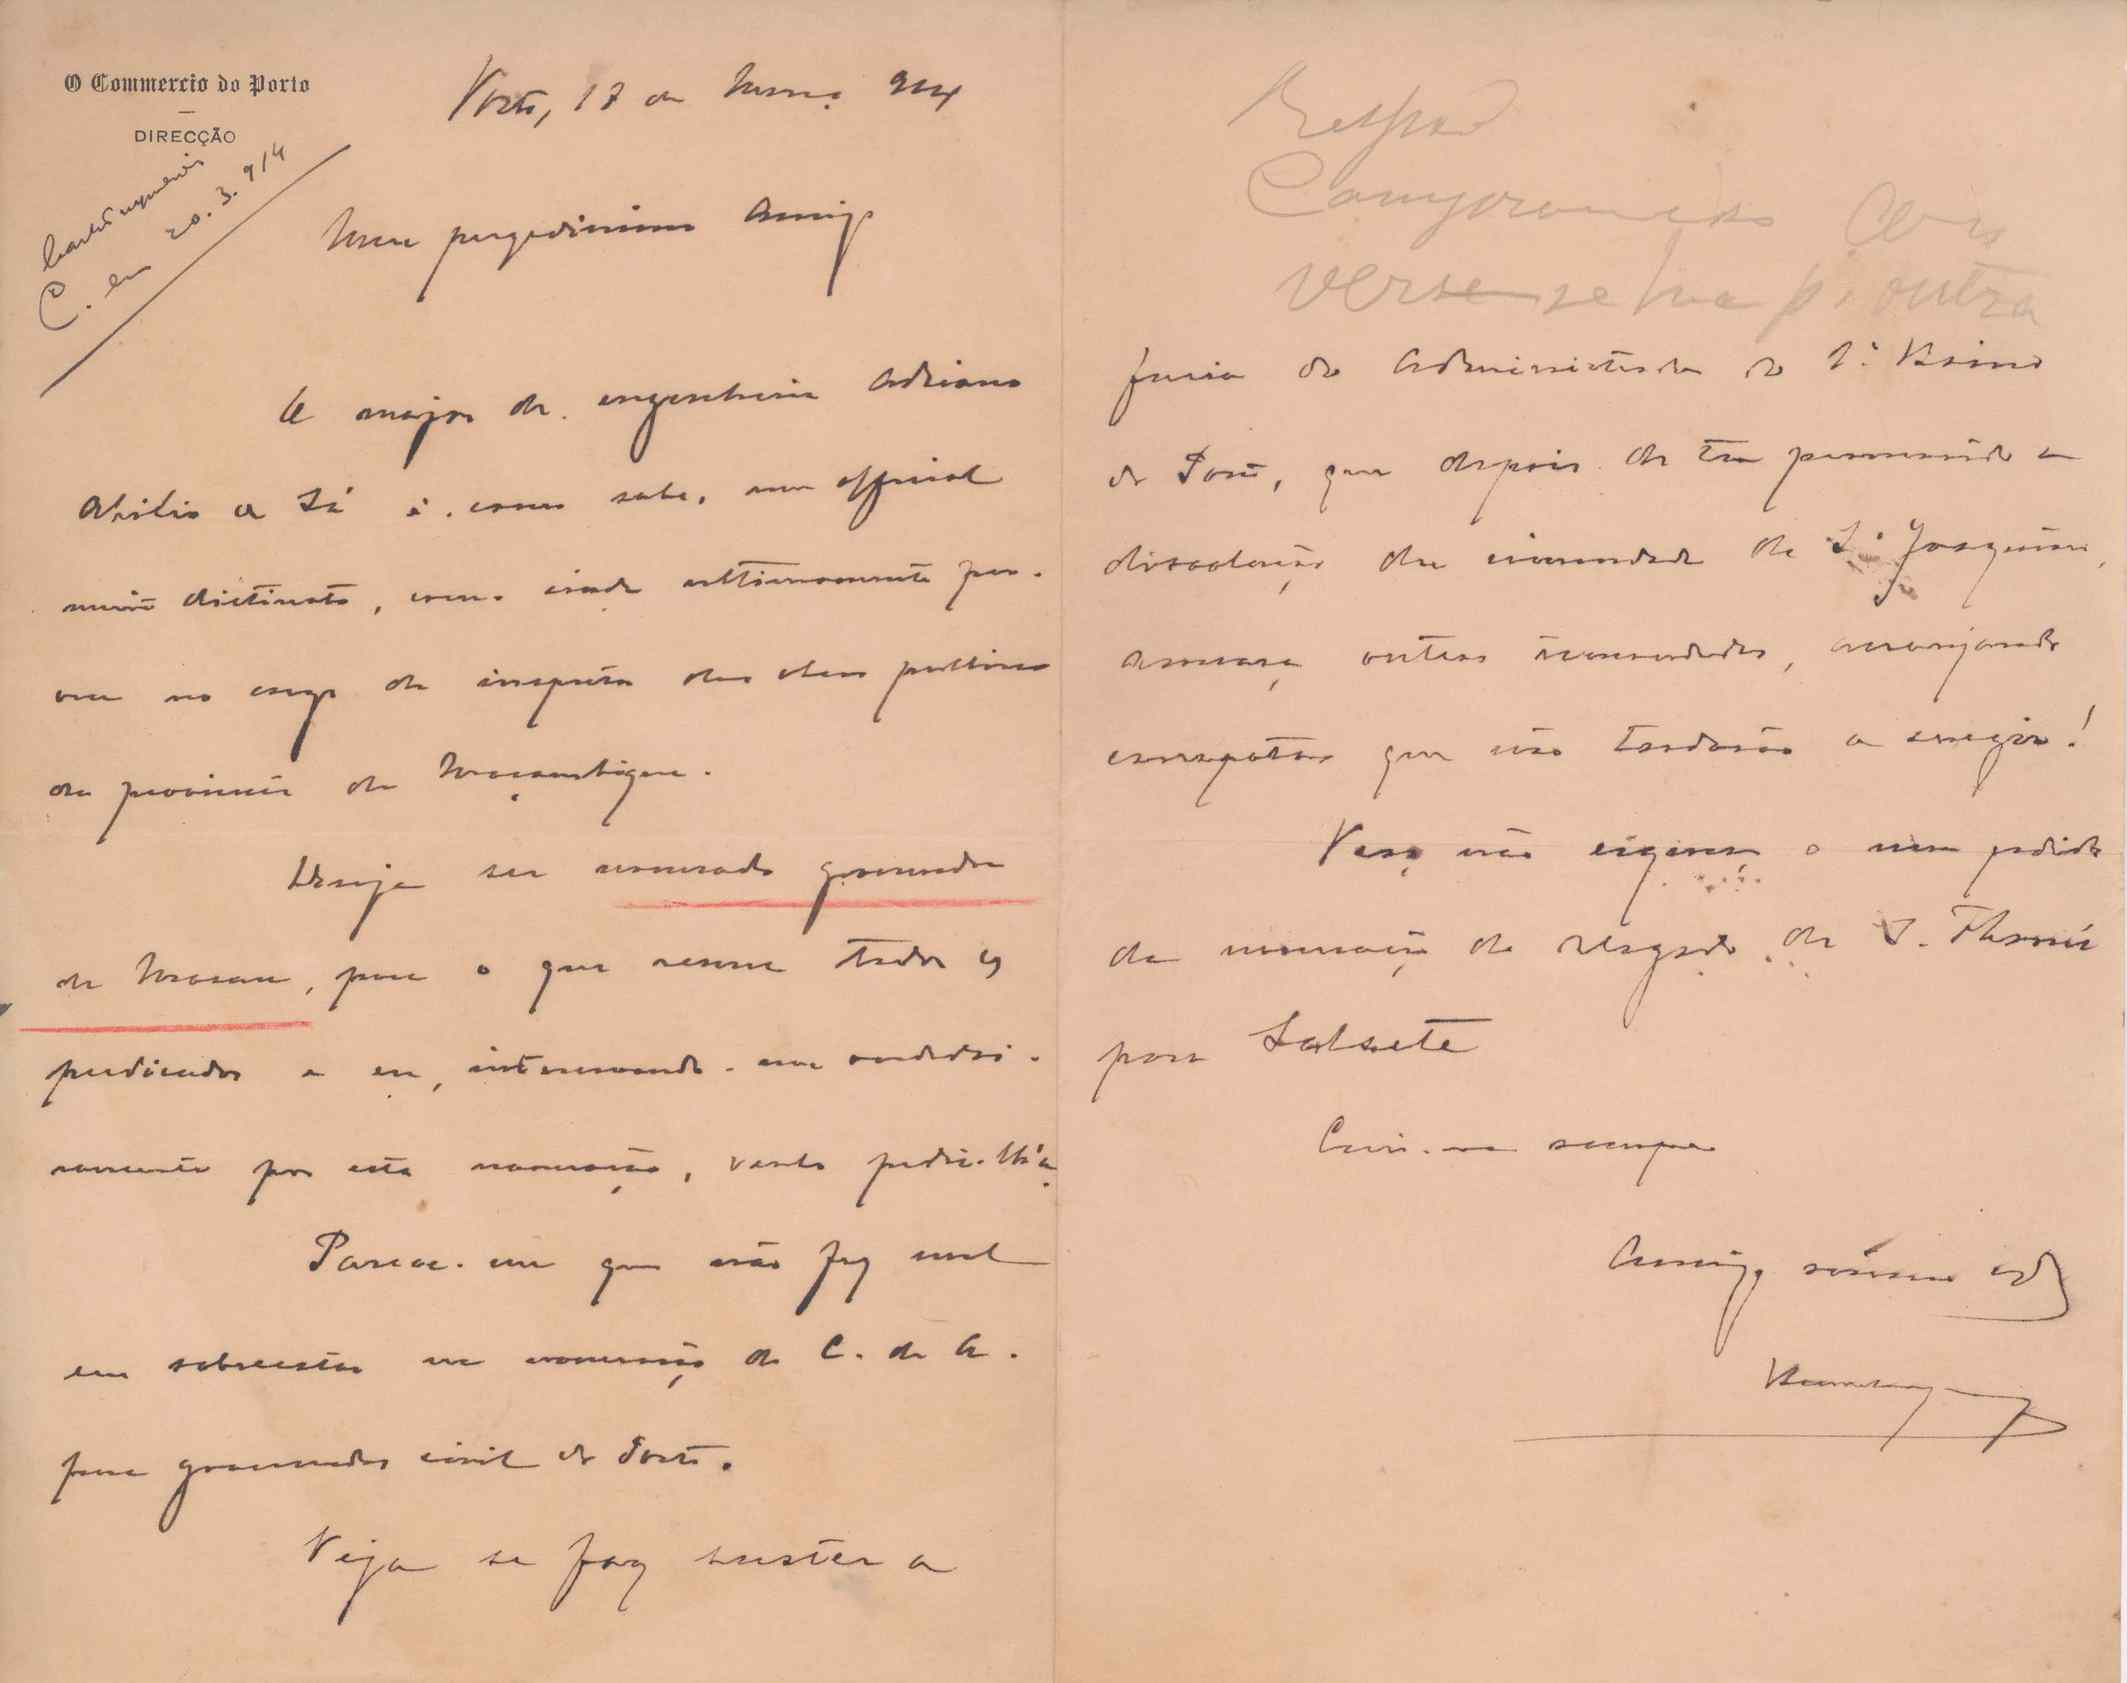 O Commercio do Porto
DIRECÇÃO
C. em 20.3.914
Porto, 17 de Março 914
Meu presadissimo Amigo
O major de engenharia Adriano
Abilio de Sá é, como sabe, um official
muito distincto, como ainda ultimamente pro-
vou no cargo de inspector das obras publicas
da provincia de Moçambique.
Deseja ser nomeado governador
de Macau, para o que reune todos os
predicados e eu, interessando-me verdadei-
ramente por esta nomeação, venho pedir-lh'a.
Parece-me que não faz mal
em sobreestar na nomeação do C. de A.
para governador civil do Porto.
Veja se faz suster a
Respond
Compromisso Con
verse-se p. outra
furia do administrador do 1.º Bairro
do Porto, que depois de ter promovido a
dissolução da irmandade de S. Joaquim,
ameaça outras irmandades, arranjando
complicações que não tardarão a surgir!
Peço não esqueça o meu pedido
da nomeação do delegado de S. Thomé
para Salsete
Creia-me sempre
Amigo